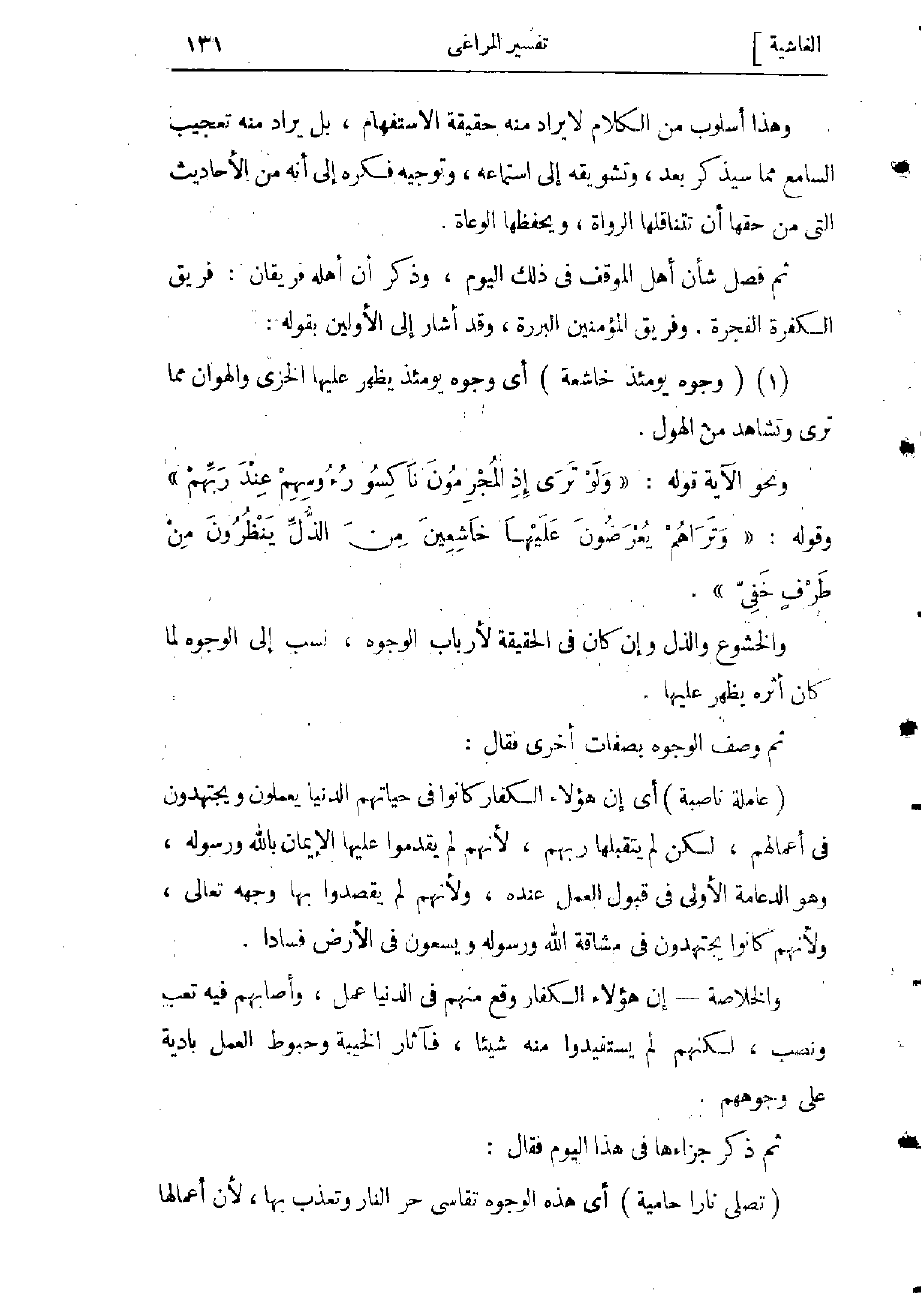 الغاشية ] تفسير المراغى ١٣١
وهذا أسلوب من الكلام لايراد منه حقيقة الاستفهام ، بل يراد منه تعجيب
السامع مما سيذكر بعد ، وتشويقه إلى استماعه ، وتوجيه فكره إلى أنه من الأحاديث
التى من حقها أن تتناقلها الرواة ، ويحفظها الوعاة .
ثم فصل شأن أهل الموقف فى ذلك اليوم ، وذكر أن أهله فريقان : فريق
الكفرة الفجرة . وفريق المؤمنين البررة ، وقد أشار إلى الأولين بقوله :
(١) ( وجوه يومئذ خاشعة ) أى وجوه يومئذ يظهر عليها الخزى والهوان مما
ترى وتشاهد من الهول .
ونحو الآية قوله : « وَلَوْ تَرَى إِذِ الْمُجْرِمُونَ نَاكِسُو رُءُوسِهِمْ عِنْدَ رَبِّهِمْ »
وقوله : « وَتَرَاهُمْ يُعْرَضُونَ عَلَيْهَا خَاشِعِينَ مِنَ الذُّلِّ يَنْظُرُونَ مِنْ
طَرْفٍ خَفِيّ » .
والخشوع والذل وإن كان فى الحقيقة لأرباب الوجوه ، نسب إلى الوجوه لما
كان أثره يظهر عليها .
ثم وصف الوجوه بصفات أخرى فقال :
( عاملة ناصبة ) أى إن هؤلاء الكفار كانوا فى حياتهم الدنيا يعملون ويجتهدون
فى أعمالهم ، لكن لم يتقبلها ربهم ، لأنهم لم يقدموا عليها الإيمان بالله ورسوله ،
وهو الدعامة الأولى فى قبول العمل عنده ، ولأنهم لم يقصدوا بها وجهه تعالى ،
ولأنهم كانوا يجتهدون فى مشاقة الله ورسوله ويسعون فى الأرض فسادا .
والخلاصة — إن هؤلاء الكفار وقع منهم فى الدنيا عمل ، وأصابهم فيه تعب
ونصب ، لكنهم لم يستفيدوا منه شيئا ، فآثار الخيبة وحبوط العمل بادية
على وجوههم .
ثم ذكر جزاءها فى هذا اليوم فقال :
( تصلى نارا حامية ) أى هذه الوجوه تقاسى حر النار وتعذب بها ، لأن أعمالها